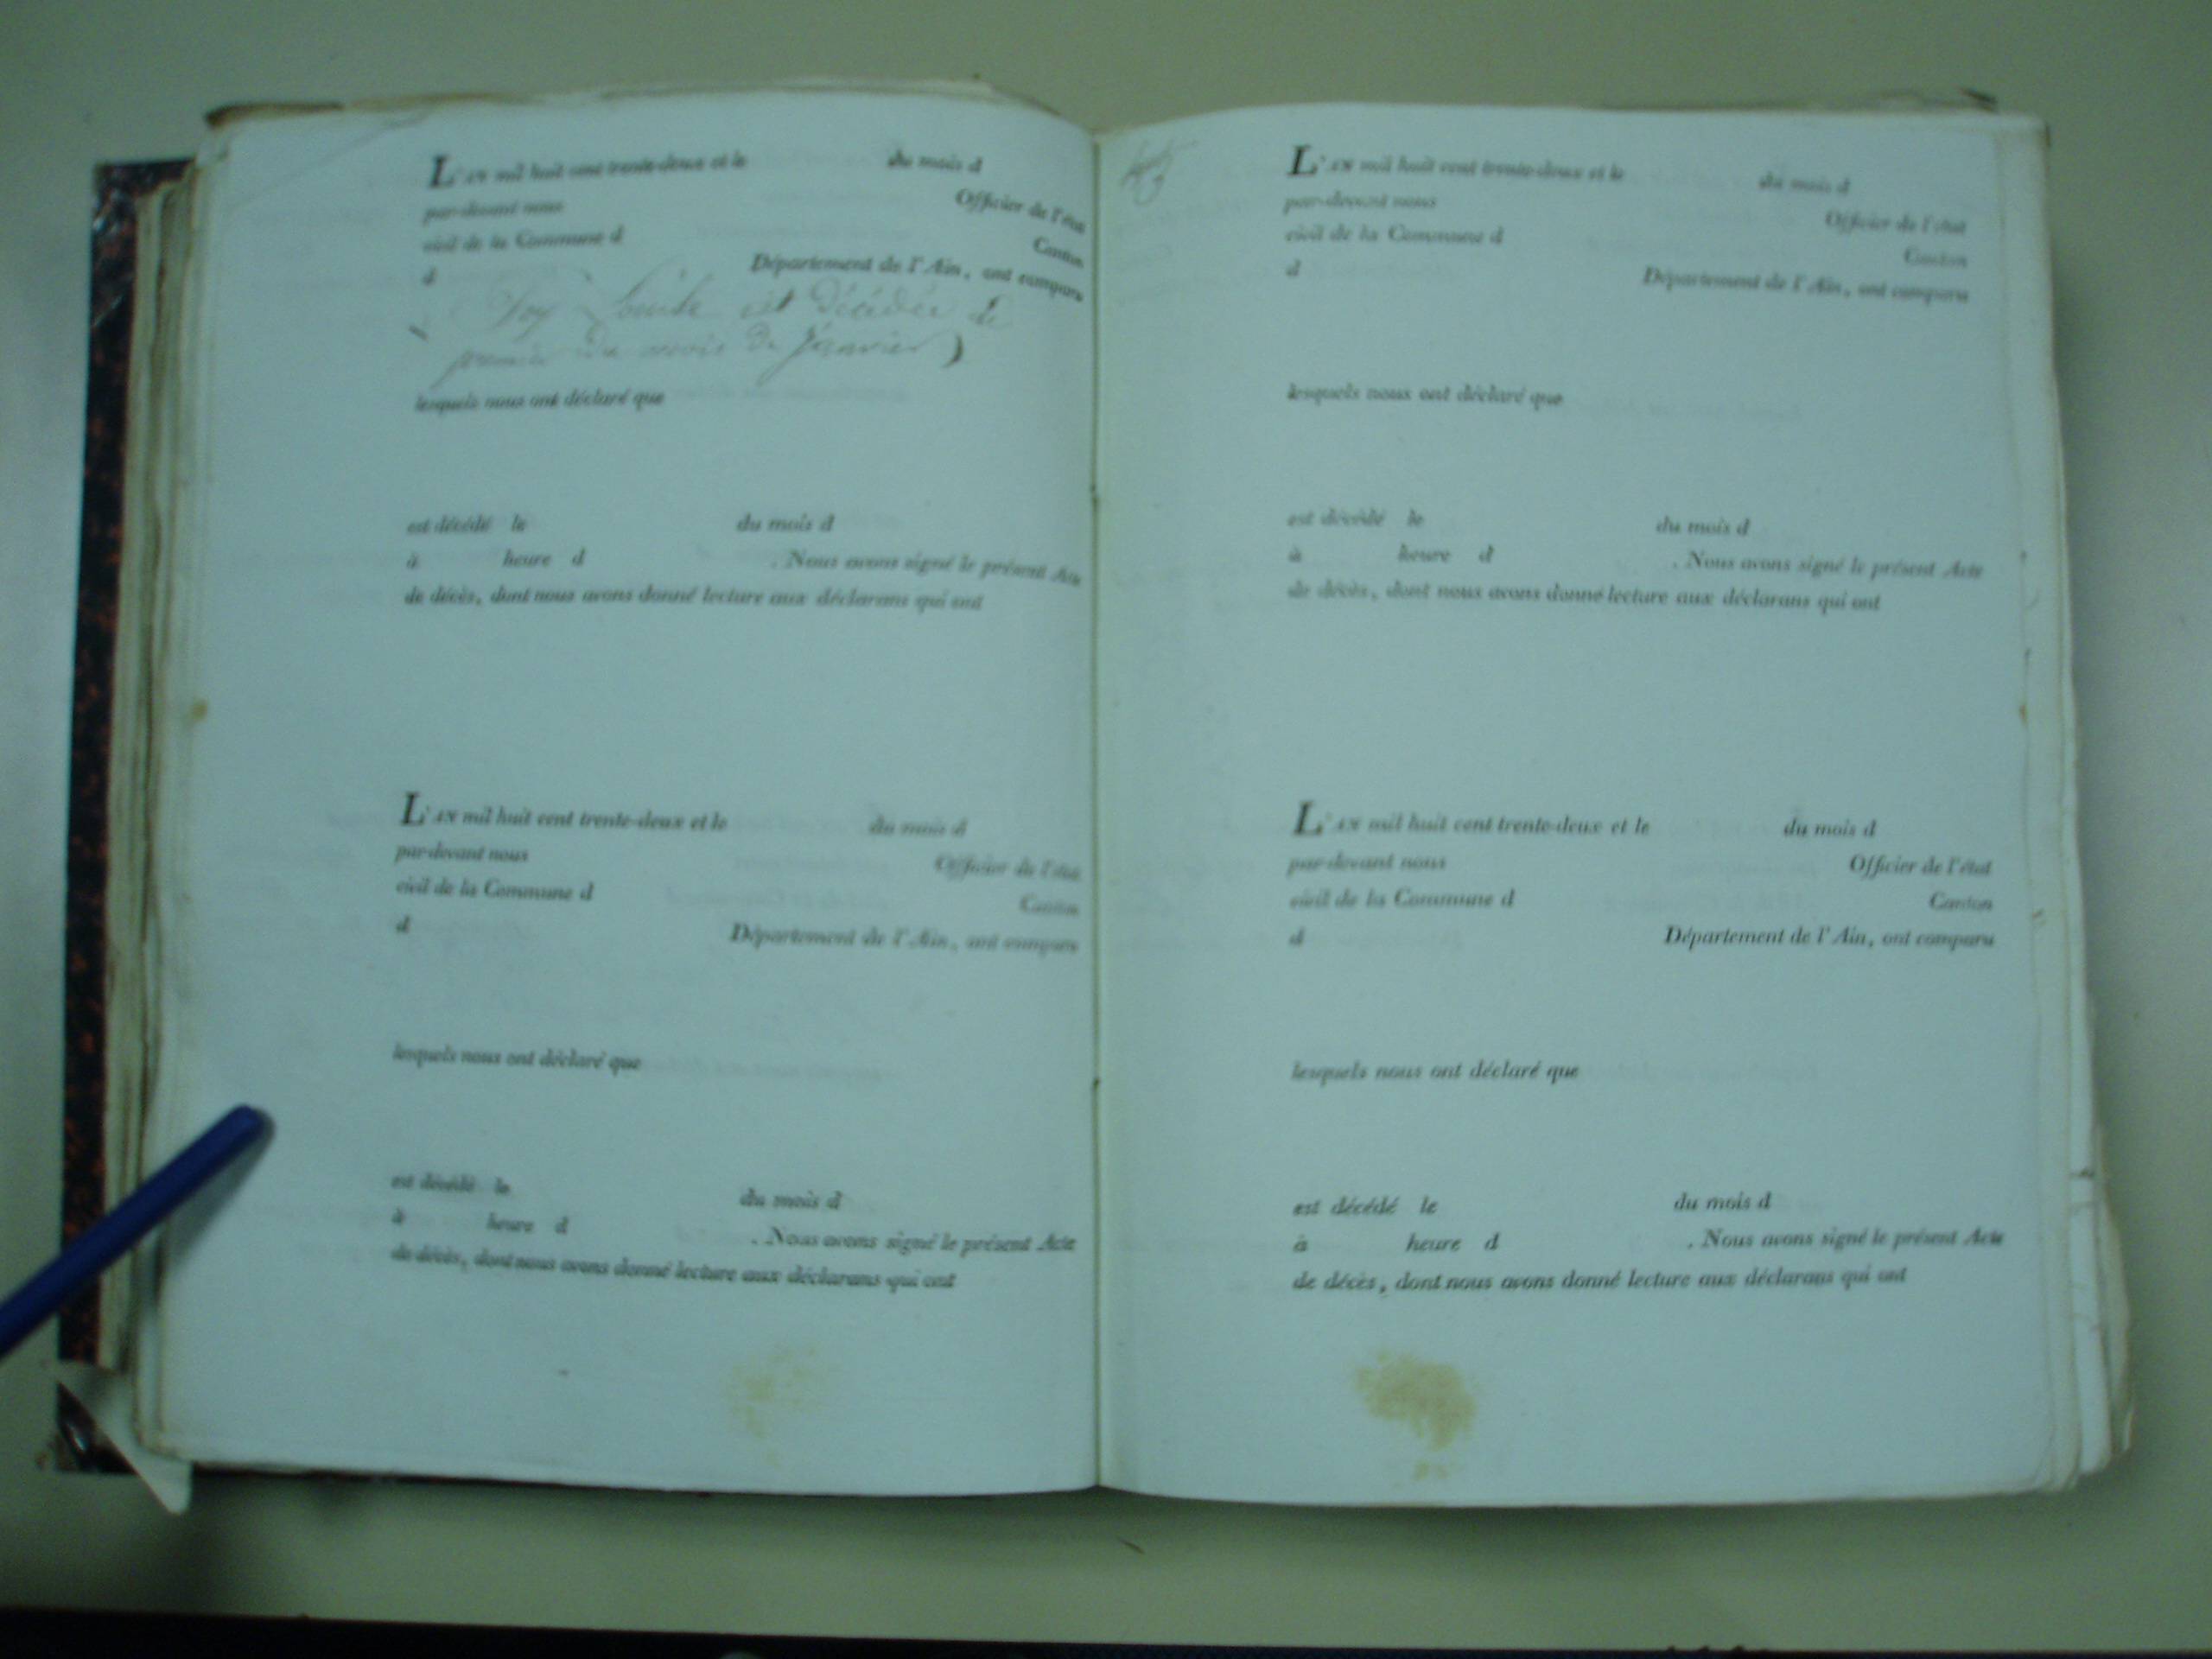 L'AN mil huit cent trente-deux et le du mois d
par-devant nous Officier de l'état
civil de la Commune d Canton
d Département de l'Ain, ont comparu
Louise est décédée le
premier du mois de Janvier)
lesquels nous ont déclaré que
est décédé le du mois d
à heure d . Nous avons signé le présent Acte
de décès, dont nous avons donné lecture aux déclarans qui ont
L'AN mil huit cent trente-deux et le du mois d
par-devant nous Officier de l'état
civil de la Commune d Canton
d Département de l'Ain, ont comparu
lesquels nous ont déclaré que
est décédé le du mois d
à heure d . Nous avons signé le présent Acte
de décès, dont nous avons donné lecture aux déclarans qui ont
L'AN mil huit cent trente-deux et le du mois d
par-devant nous Officier de l'état
civil de la Commune d Canton
d Département de l'Ain, ont comparu
lesquels nous ont déclaré que
est décédé le du mois d
à heure d . Nous avons signé le présent Acte
de décès, dont nous avons donné lecture aux déclarans qui ont
L'AN mil huit cent trente-deux et le du mois d
par-devant nous Officier de l'état
civil de la Commune d Canton
d Département de l'Ain, ont comparu
lesquels nous ont déclaré que
est décédé le du mois d
à heure d . Nous avons signé le présent Acte
de décès, dont nous avons donné lecture aux déclarans qui ont